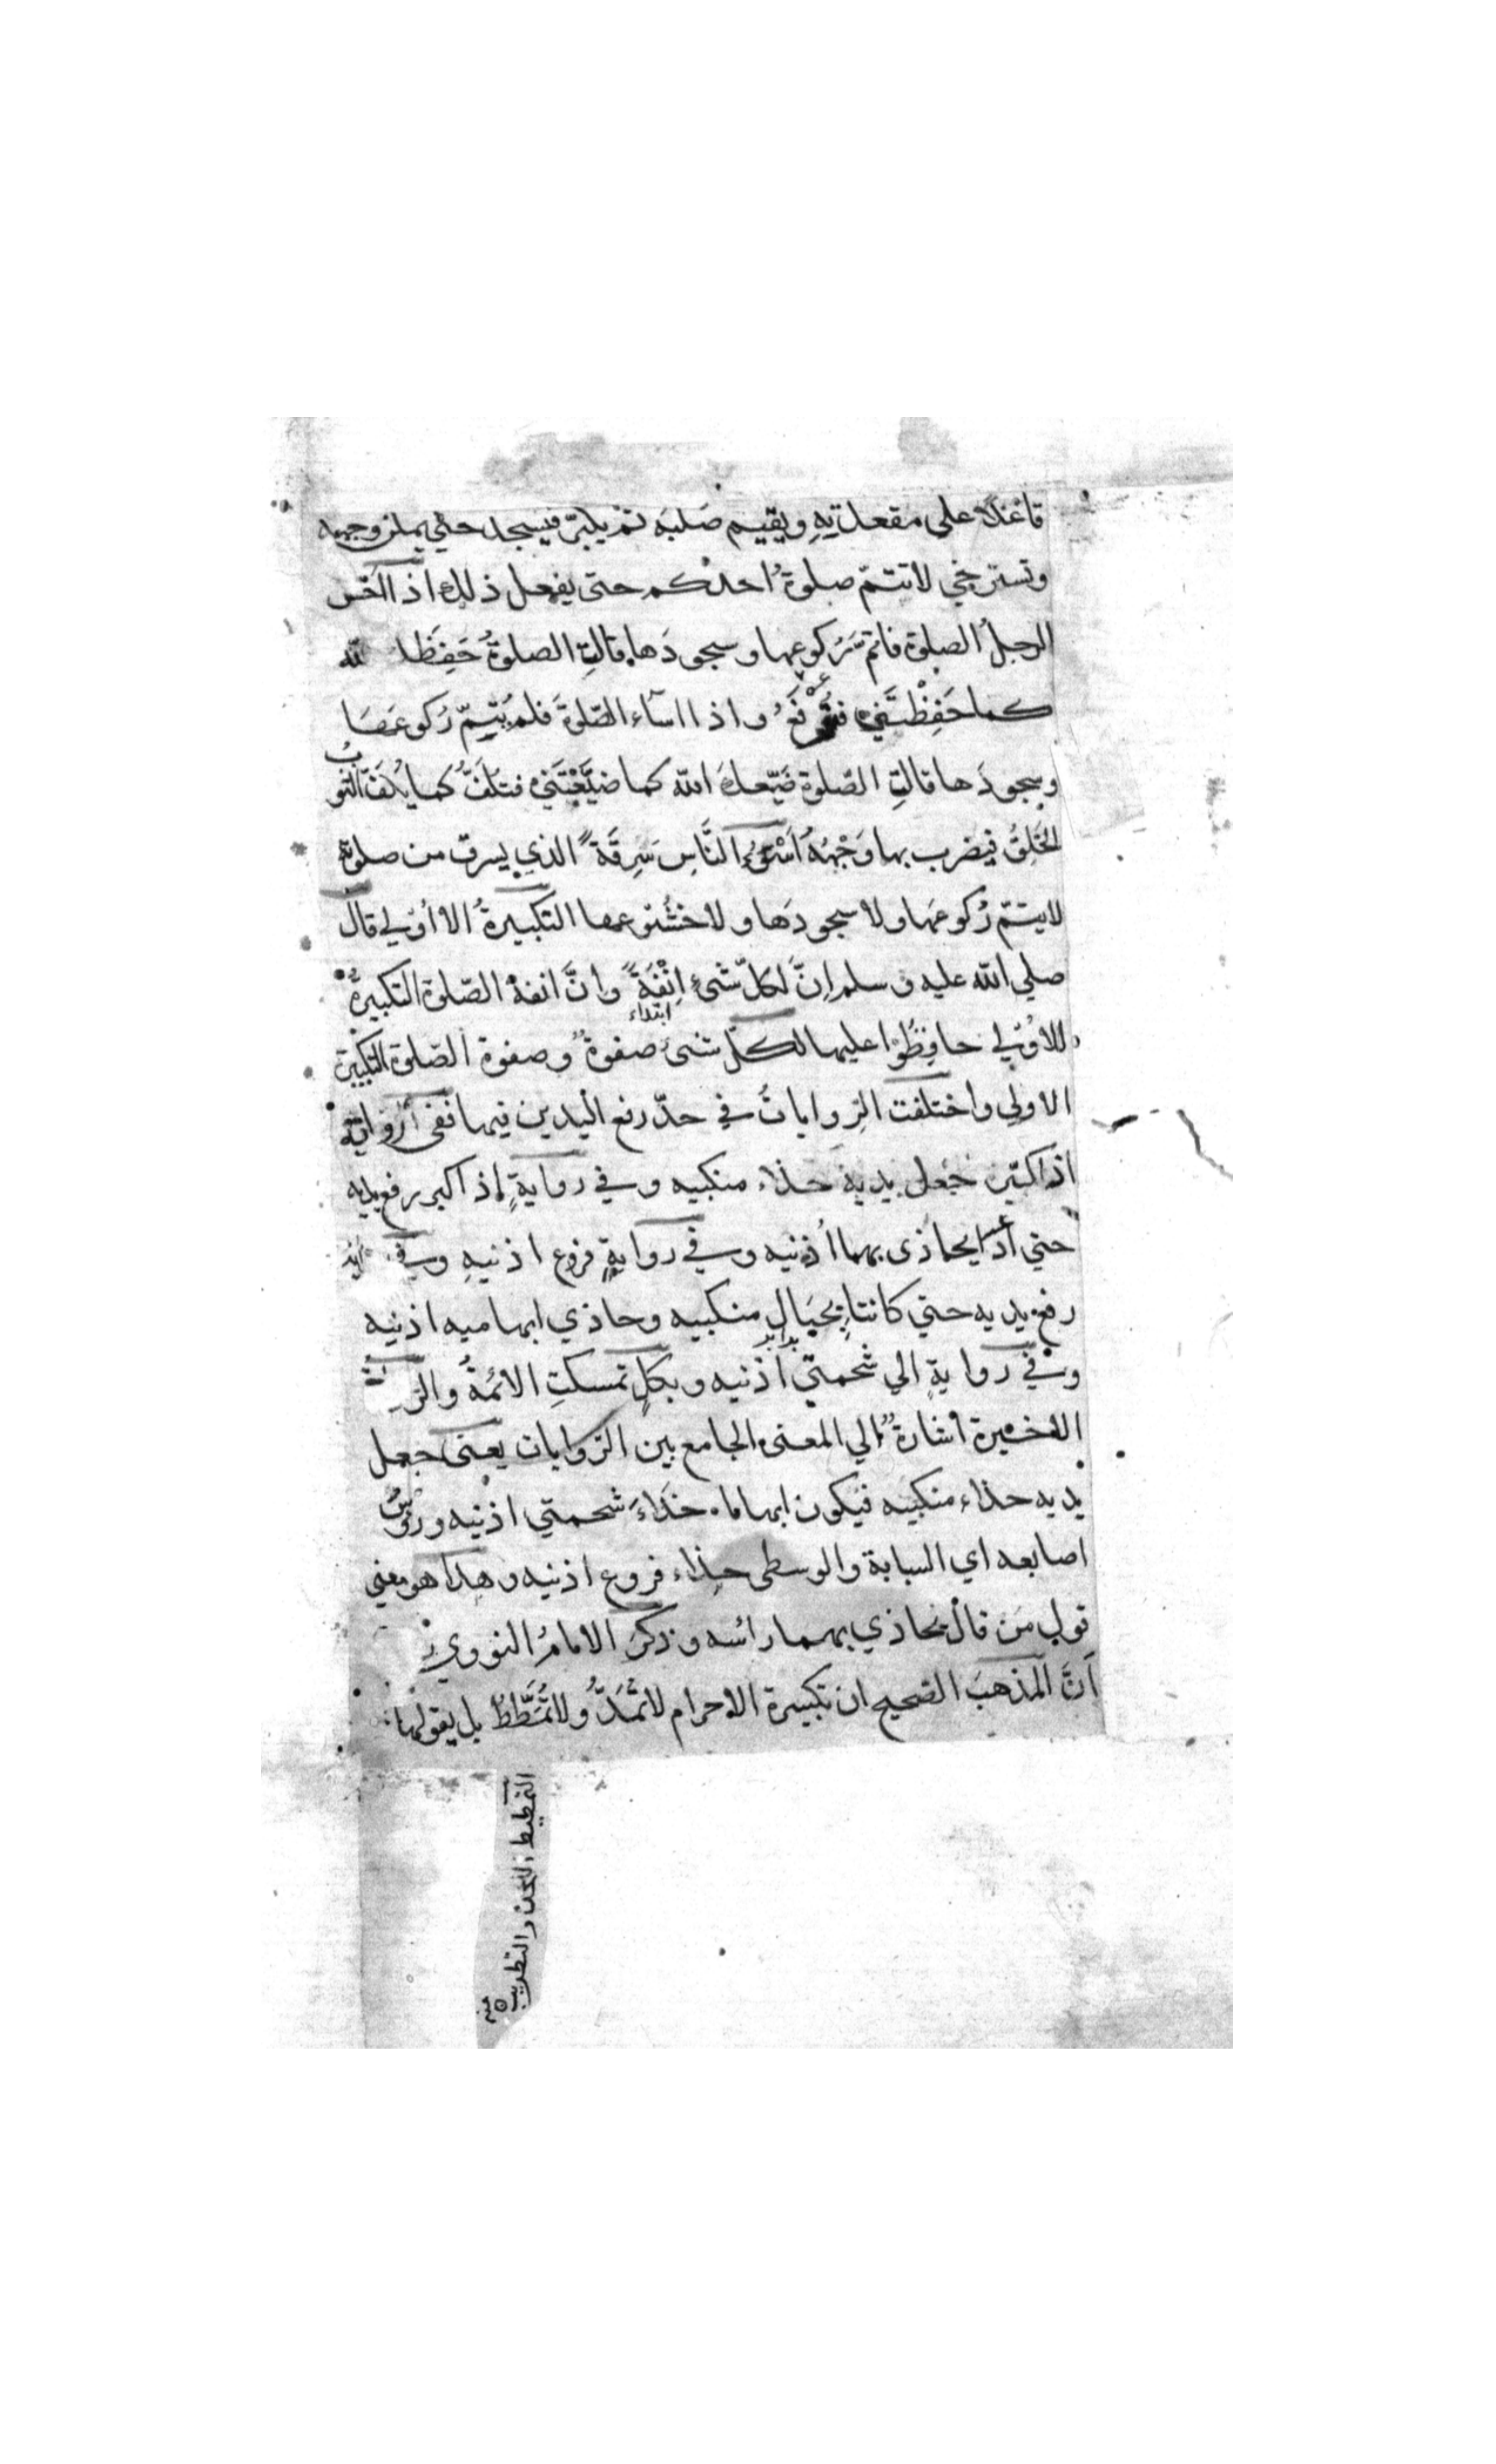 قاعدًا على مقعدتِهِ ويقيم صَلبَه ثمّ يكبّر فيسجد حتي يمكن وجهه
وتسترخي لا تتمّ صلوةُ احدكم حتى يفعل ذلك اذا احسن
الرجلُ الصلوة فاتمّ رُكوعها وسجودَها قالتِ الصلوةُ حَفِظَك الله
كما حَفِظْتَني فتُرْفَعُ واذا اسآء الصّلوةَ فلم يُتِمّ رُكوعَهَا
وسجودَها قالتِ الصّلوة ضَيّعك الله كما ضيَّعْتَني فتُلَفُّ كما يُلَفّ الثوبُ
الخَلِقُ فيضرب بها وَجْهُهُ اَسْوَءُ النَّاسِ سَرِقَةً الذي يسرق من صلوته
لا يتمّ رُكوعَها ولا سجودَها ولا خشُوعها التكبيرةُ الاُوْلي قال
صلي الله عليه وسلم اِنَّ لكلّ شئٍ اِنْفَةً وانَّ انفة الصّلوة التكبيرةُ
ابتداء
الاُوْلي حافِظُوْا عليها لكلّ شئ صفوةٌ وصفوة الصّلوة التكبيرة
الاولي واختلفت الرِّواياتُ في حدّ رفع اليدين فيها ففى رواية
اذا كبّر جعل يديه حذاء منكبيه وفي روايةٍ اذا كبر رفع يديه
حتي يحاذى بهما اُذنيه وفي روايةٍ فروع اذنيهِ وفي
رفع يديه حتي كانتا بِحِيَال منكبيه وحاذي ابهاميه اذنيه
وفي روايةٍ الي شحمتي اُذنيه وبكلٍ تمسكتِ الائمةُ
الاخيرة اشارةٌ الي المعنى الجامع بين الرّوايات يعنى جعل
يديه حذاء منكبيه فيكون ابهاماه حذاءَ شحمتي اذنيه ورؤس
اصابعه اي السبابة والوسطى حذاء فروع اذنيه وهذا هو معني
قول مَن قال يحاذي بهما رائسه وذكرَ الامامُ النووي
اَنَّ المذهبَ الصحيح ان تكبيرة الاحرام لا تُمَدُّ ولا تُمَطَّطُ بل يقولها
التمطيط اللحن والتطريب منه